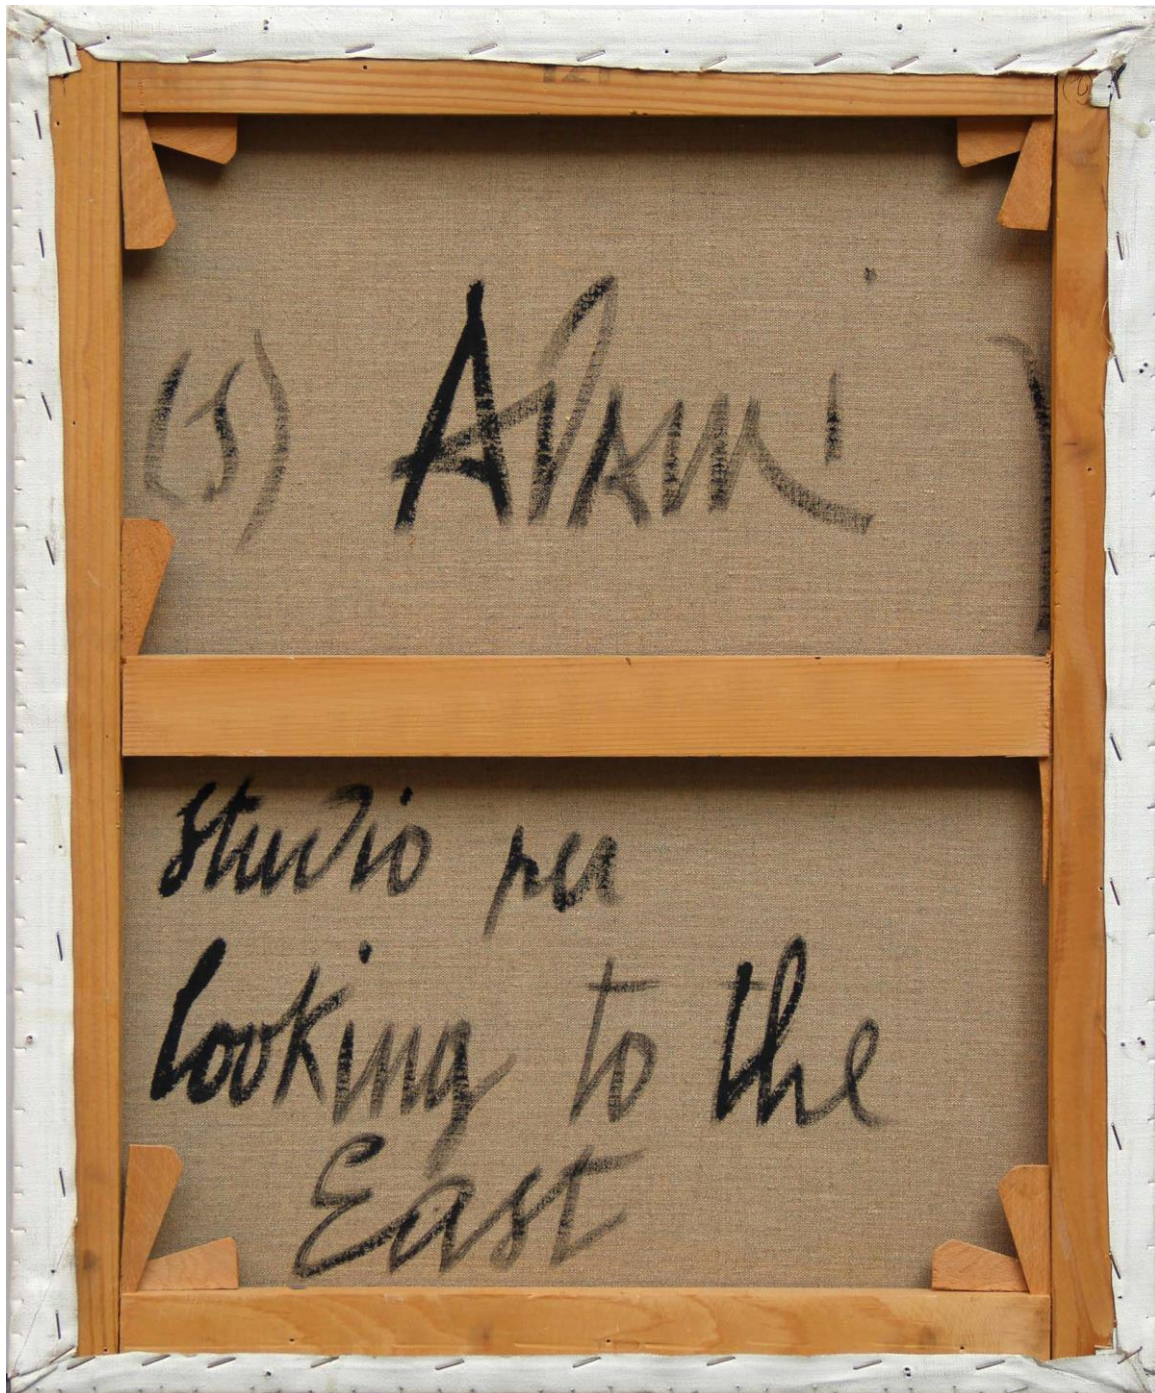 (5) Adami
studio per
looking to the
East